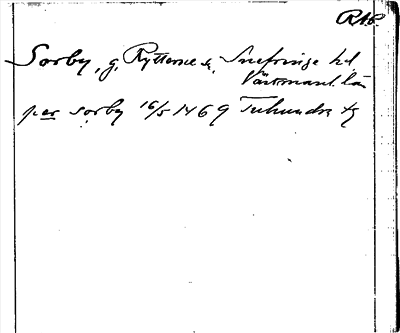 RAP.
Sörby, g, Rytterne s., Snefringe hd,
Västmanl. län
per sørby 16/5 1469 Tuhundra hg